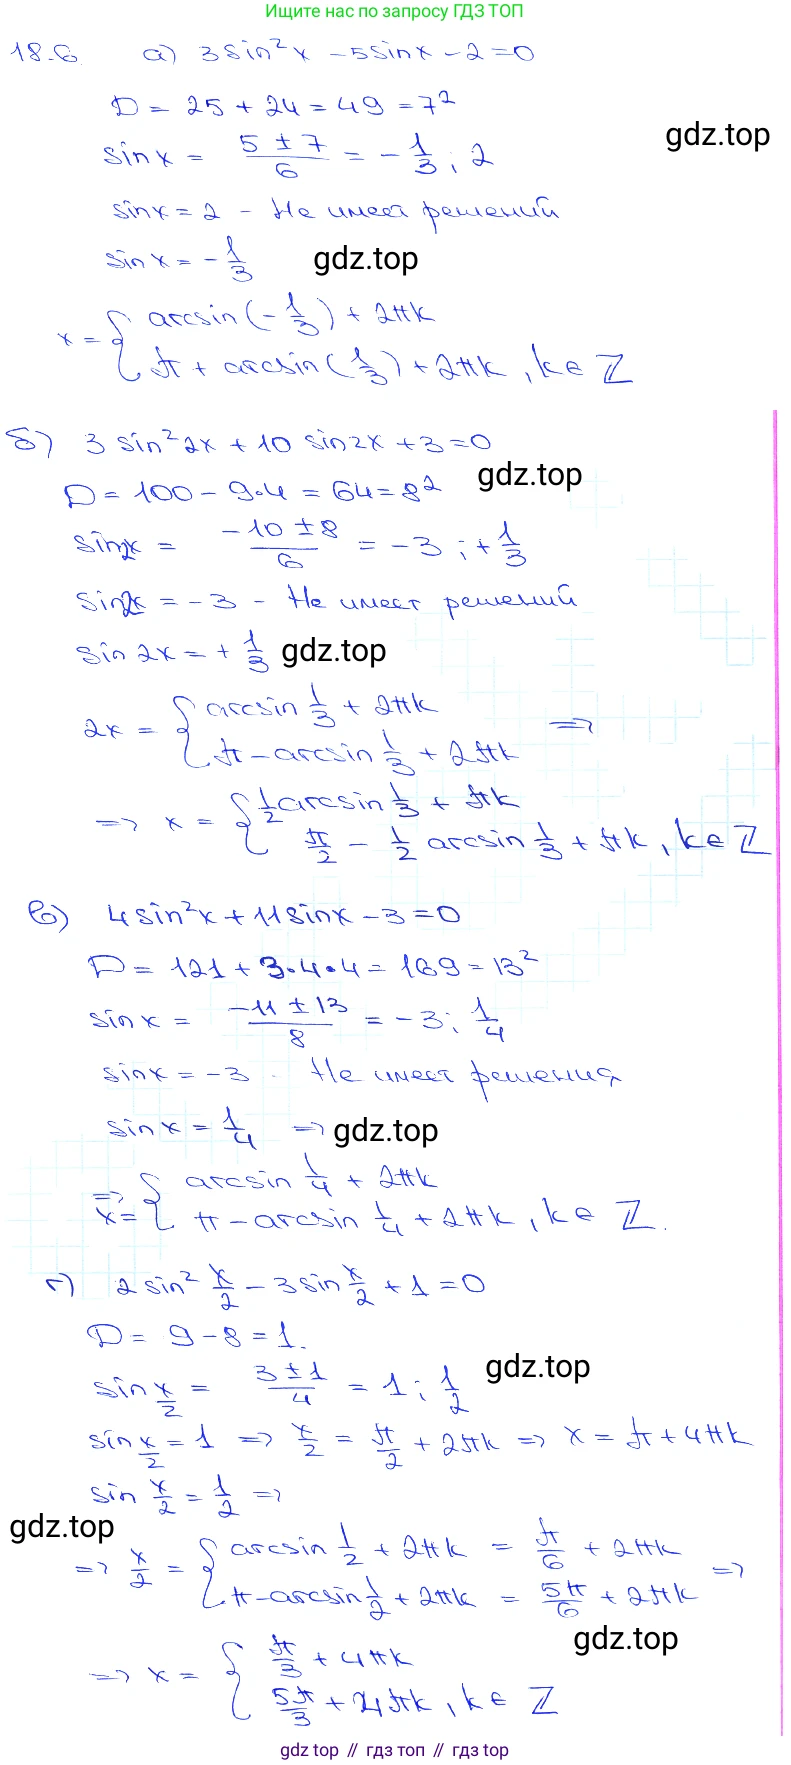 Ищите нас по запросу ГДЗ ТОП
18.6. а) 3sin²x - 5sinx - 2 = 0
D = 25 + 24 = 49 = 7²
gdz.top
sinx = (5 ± 7)/6 = -1/3 ; 2
sinx = 2 - Не имеет решений
sinx = -1/3
gdz.top
x = { arcsin(-1/3) + 2πk
π + arcsin(1/3) + 2πk, k ∈ Z
б) 3 sin²2x + 10 sin2x + 3 = 0
D = 100 - 9·4 = 64 = 8²
gdz.top
sin2x = (-10 ± 8)/6 = -3 ; +1/3
sin2x = -3 - Не имеет решений
sin2x = +1/3
gdz.top
2x = { arcsin 1/3 + 2πk
π - arcsin 1/3 + 2πk =>
=> x = { 1/2 arcsin 1/3 + πk
π/2 - 1/2 arcsin 1/3 + πk, k ∈ Z
в) 4sin²x + 11sinx - 3 = 0
D = 121 + 3·4·4 = 169 = 13²
sinx = (-11 ± 13)/8 = -3 ; 1/4
sinx = -3 - Не имеет решения
sinx = 1/4 =>
gdz.top
=> x = { arcsin 1/4 + 2πk
π - arcsin 1/4 + 2πk, k ∈ Z.
г) 2sin² x/2 - 3sin x/2 + 1 = 0
D = 9 - 8 = 1.
gdz.top
sin x/2 = (3 ± 1)/4 = 1 ; 1/2
sin x/2 = 1 => x/2 = π/2 + 2πk => x = π + 4πk
sin x/2 = 1/2 =>
gdz.top
=> x/2 = { arcsin 1/2 + 2πk = π/6 + 2πk
π - arcsin 1/2 + 2πk = 5π/6 + 2πk =>
gdz.top
=> x = { π/3 + 4πk
5π/3 + 4πk, k ∈ Z
gdz top // гдз топ // gdz top